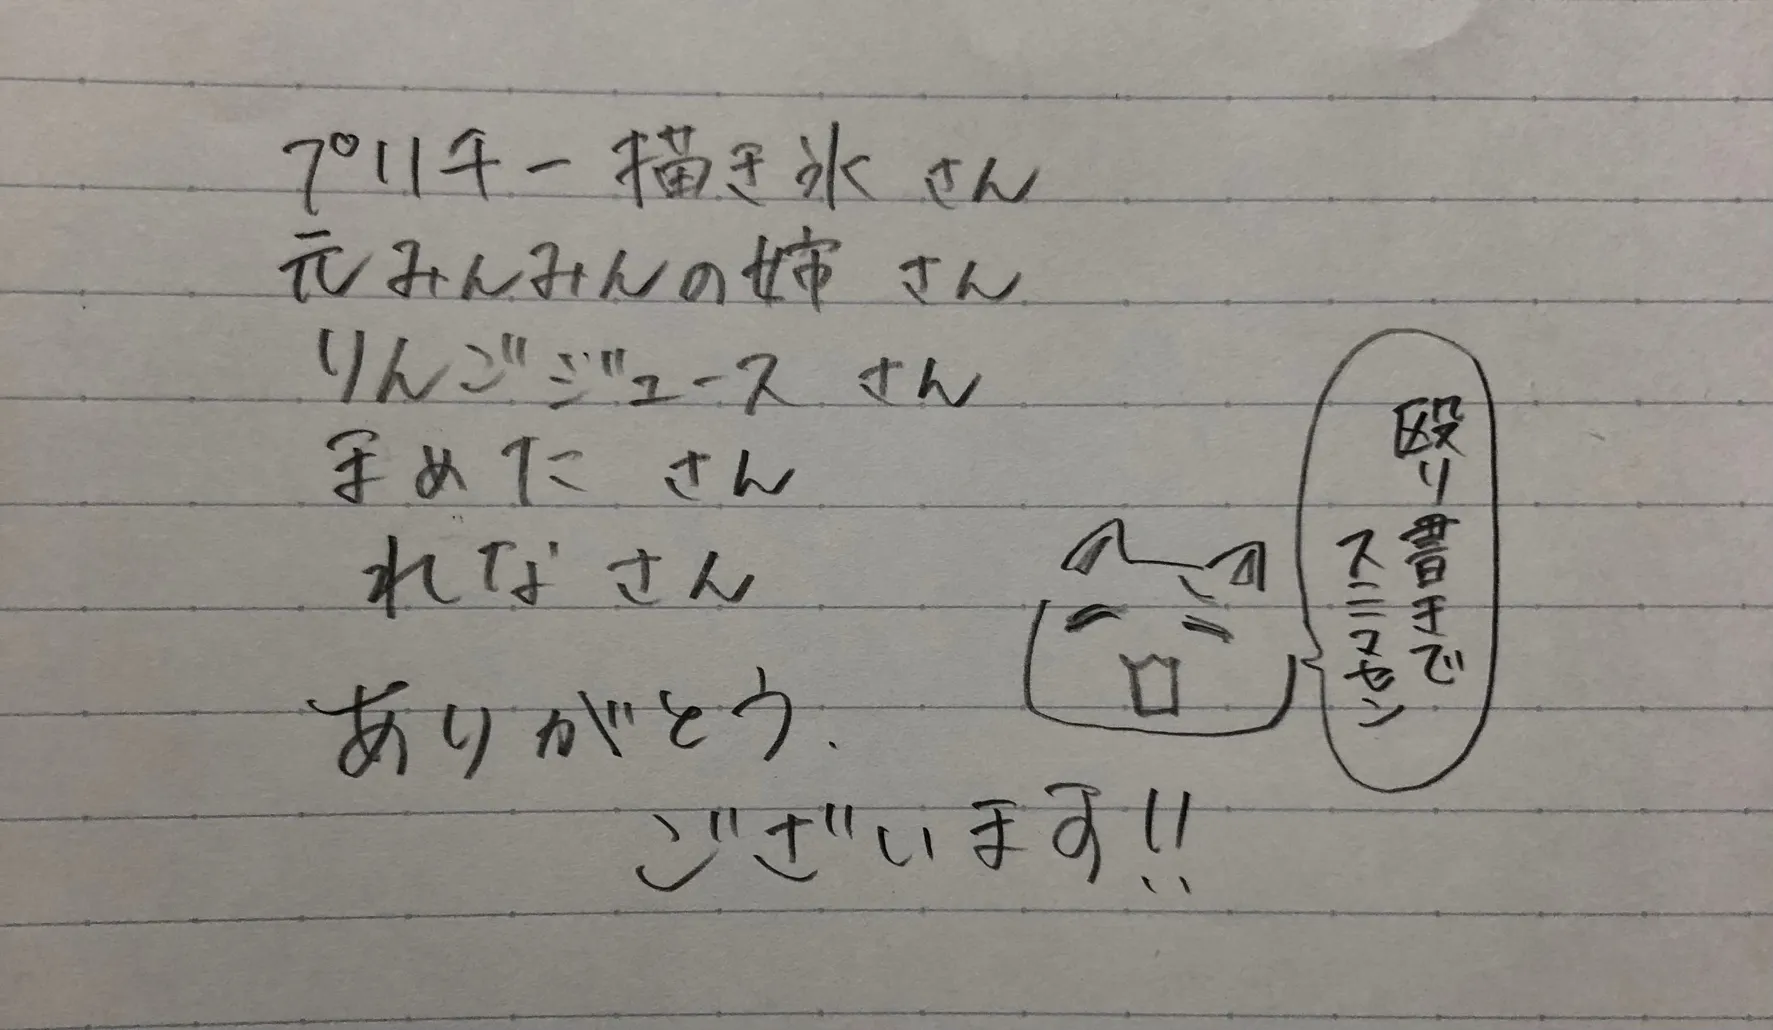 プリチー描き氷さん
元みんみんの姉さん
りんごジュースさん
まめたさん
れなさん
ありがとう
ございます!!
殴り書きで
スミマセン